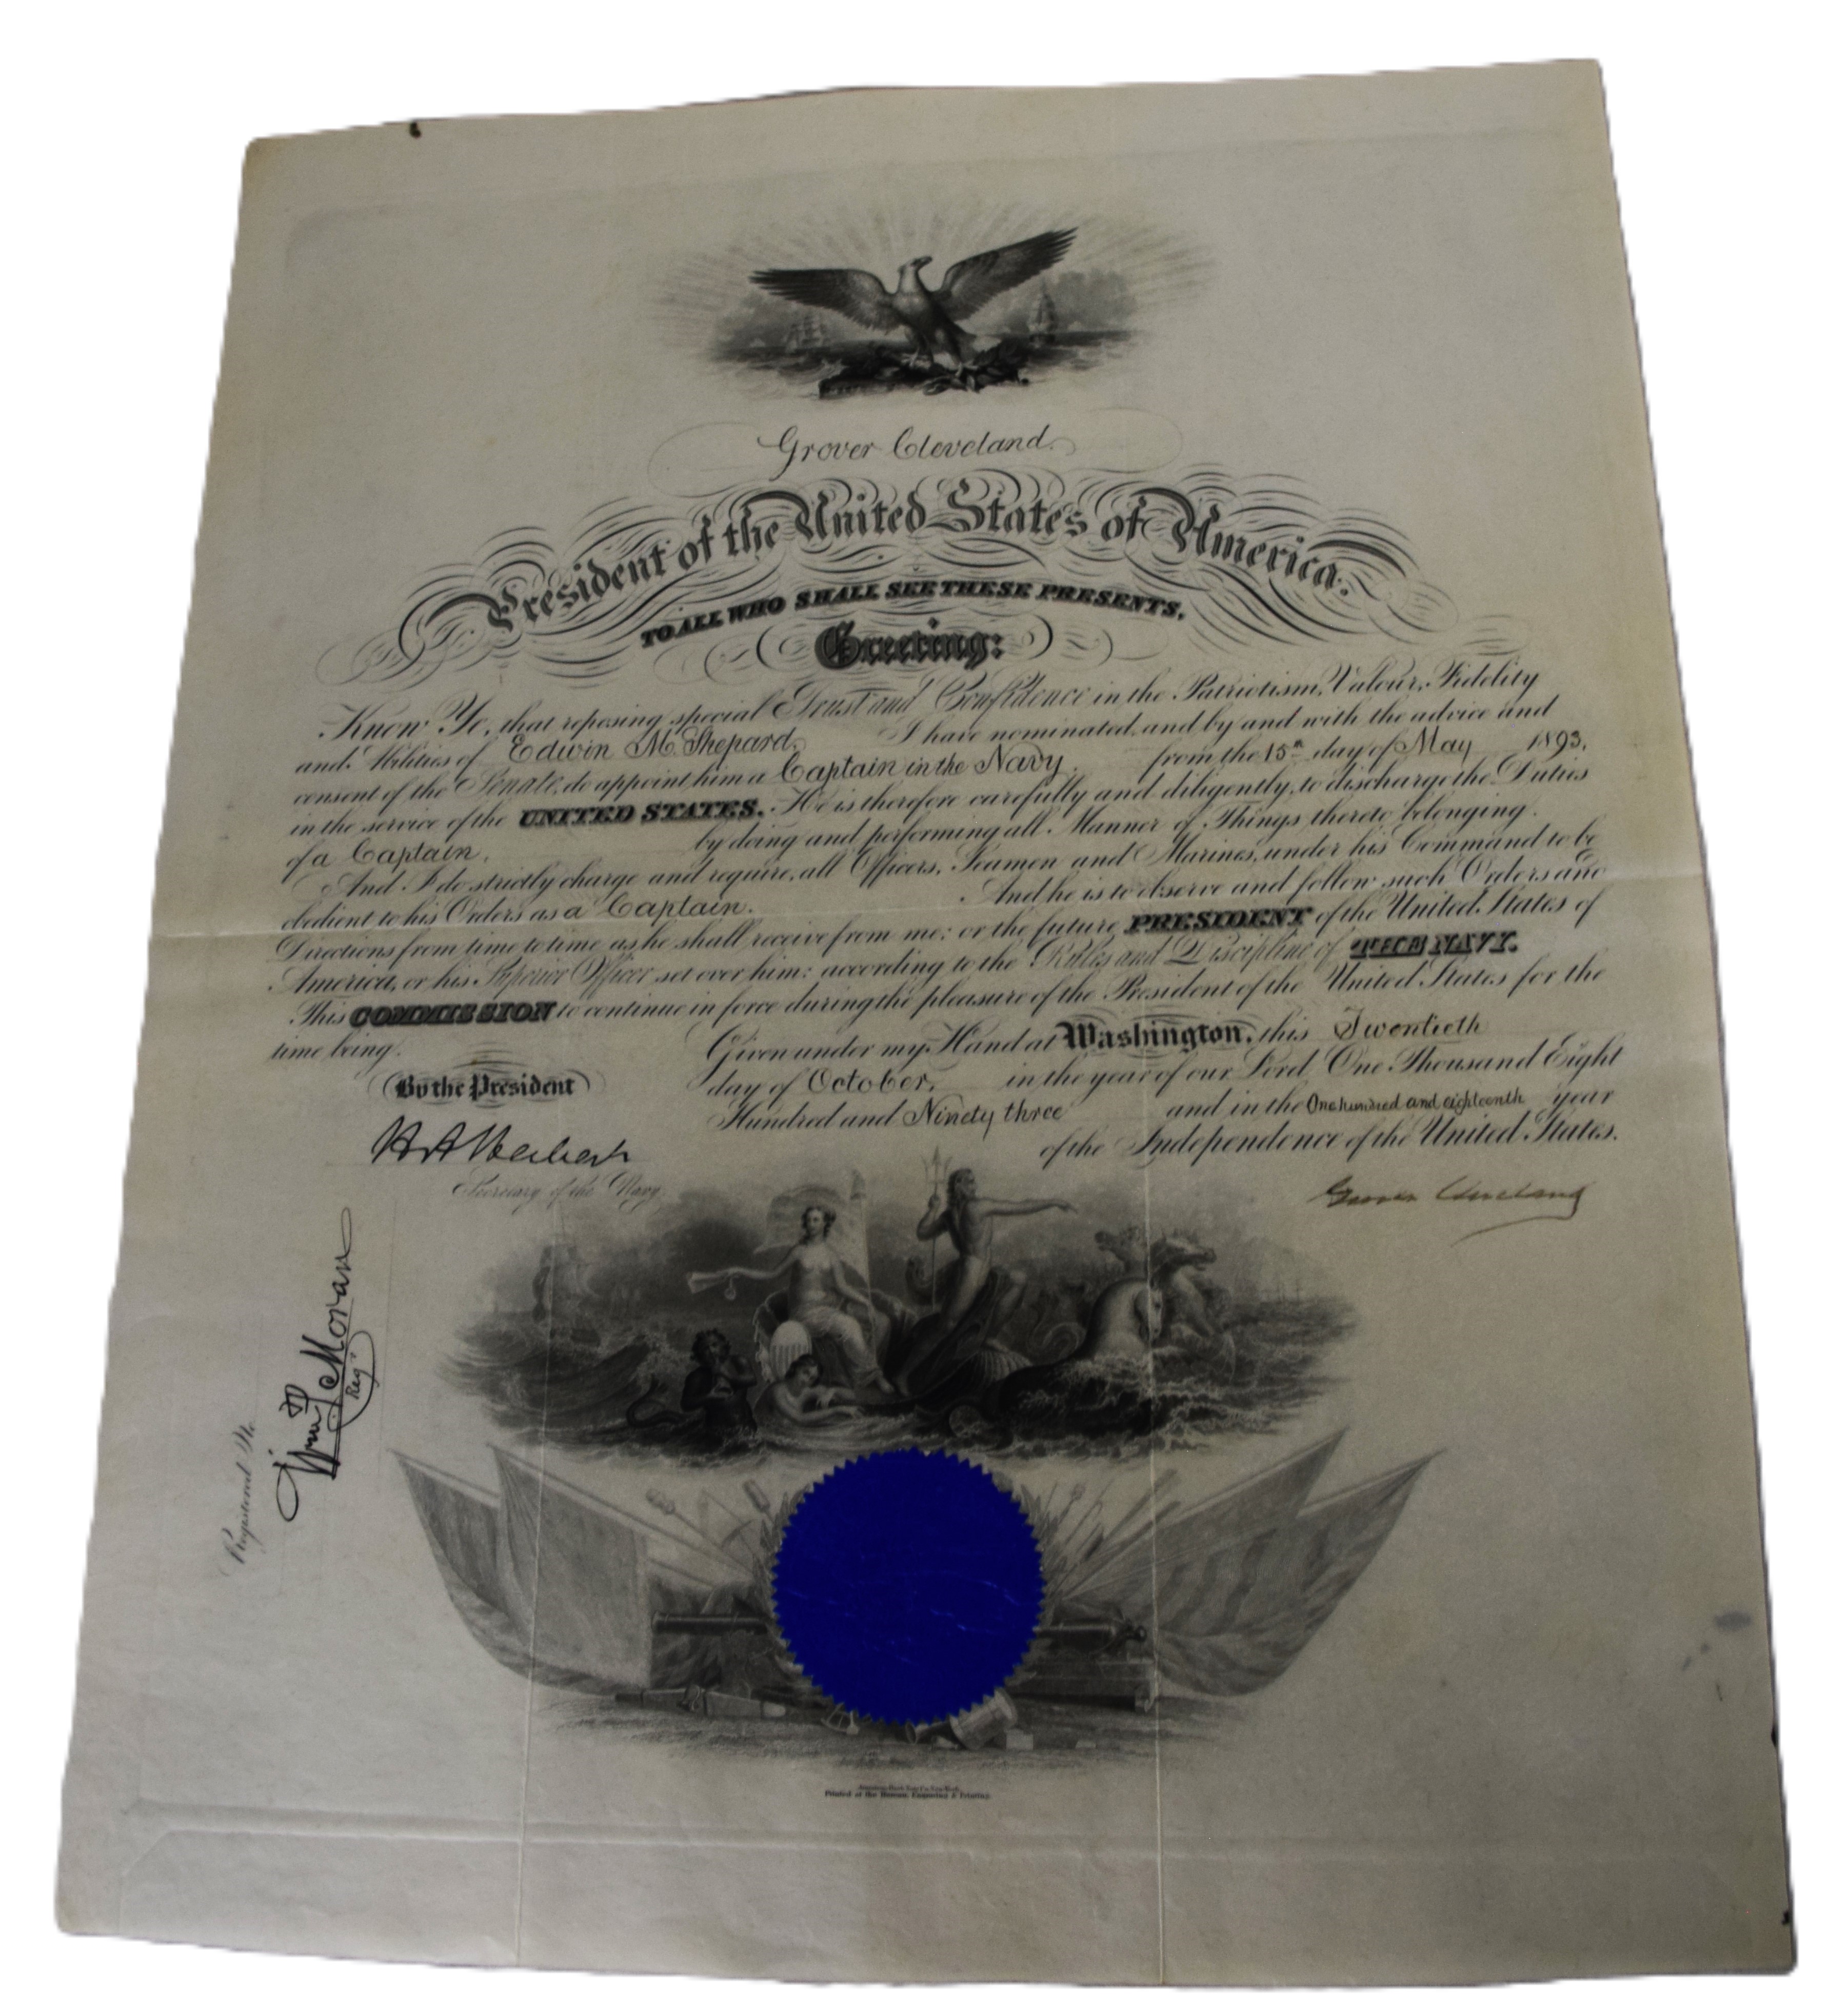 Grover Cleveland.
President of the United States of America.
TO ALL WHO SHALL SEE THESE PRESENTS,
Greeting:
Know Ye, that reposing special Trust and Confidence in the Patriotism, Valour, Fidelity
and Abilities of Edwin M. Shepard, I have nominated, and by and with the advice and
consent of the Senate, do appoint him a Captain in the Navy, from the 15th day of May 1893,
in the service of the UNITED STATES. He is therefore carefully and diligently, to discharge the Duties
of a Captain, by doing and performing all Manner of Things thereto belonging.
And I do strictly charge and require, all Officers, Seamen and Marines, under his Command to be
obedient to his Orders as a Captain. And he is to observe and follow such Orders and
Directions from time to time, as he shall receive from me; or the future PRESIDENT of the United States of
America, or his Superior Officer set over him; according to the Rules and Discipline of THE NAVY.
This COMMISSION to continue in force during the pleasure of the President of the United States for the
time being.
Given under my Hand at Washington, this Twentieth
day of October, in the year of our Lord One Thousand Eight
Hundred and Ninety three and in the One hundred and eighteenth year
of the Independence of the United States.
By the President
Grover Cleveland
H A Herbert
Secretary of the Navy.
Registered No.
Wm P Moran
Reg
Printed at the Bureau, Engraving & Printing.